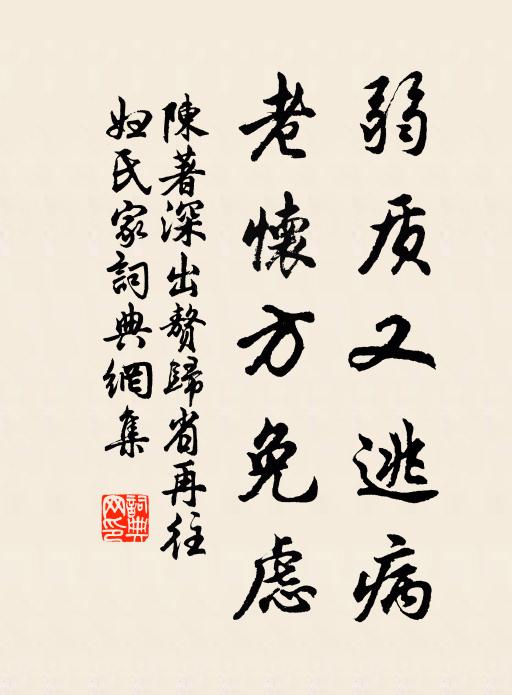 弱质又逃病
老懷方免慮
陳著深出贅歸省再往
妇氏家詞典網集
詞典網印